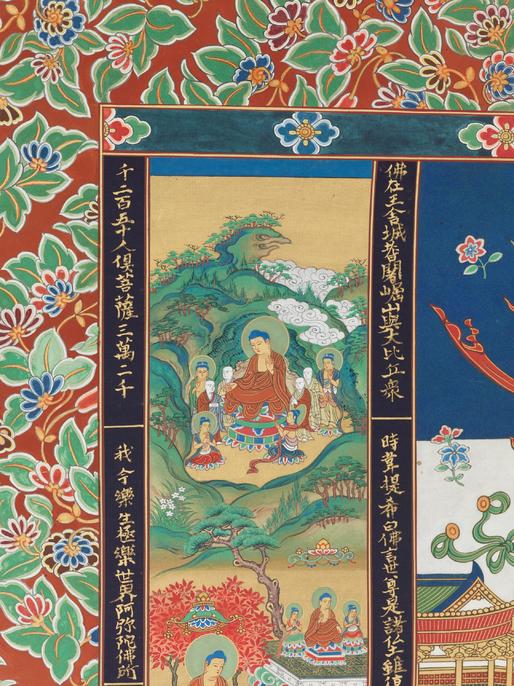 佛在王舍城耆闍崛山與大比丘衆
千二百五十人俱菩薩三萬二千
時韋提希白佛言世尊是諸仏土雖
我今樂生極樂世界阿弥陀佛所